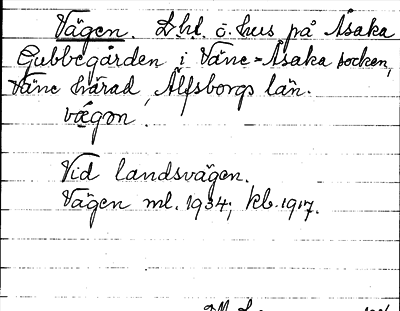 Vägen. Lht. o. hus på Åsaka
Gubbegården i Väne-Åsaka socken,
Väne härad, Älfsborgs län.
vägon.
Vid landsvägen.
Vägen ml. 1934; kb. 1917.